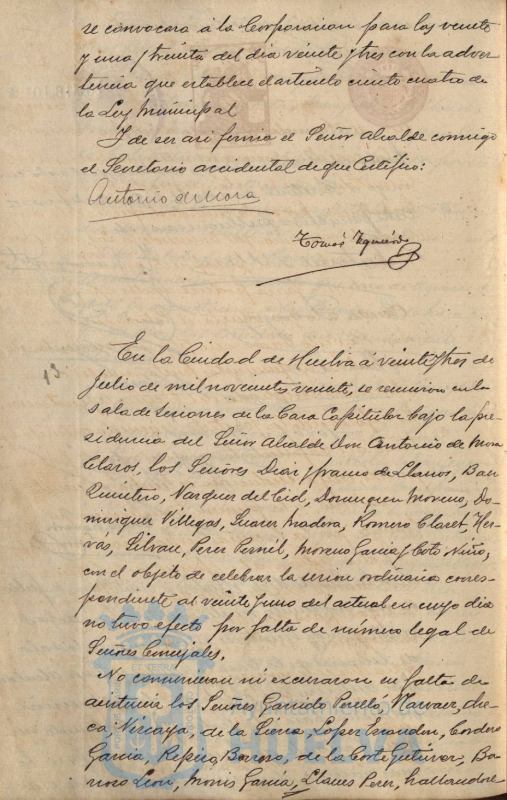 se convocara á la Corporacion para las veinte
y una y treinta del dia veinte y tres con la adver
tencia que establece el articulo ciento cuatro de
la Ley Municipal
Y de ser asi firma el Señor Alcalde conmigo
el Secretario accidental de que Certifico:
Antonio de Mora
Tomás Izquierdo
13
En la Ciudad de Huelva á veinte y tres de
Julio de mil novecientos veinte, se reunieron en la
sala de sesiones de la Casa Capitular bajo la pre-
sidencia del Señor Alcalde Don Antonio de Mora
Claros, los Señores Diaz y Franco de Llanos,
Quintero, Vazquez del Cid, Dominguez Moreno, Do-
minguez Villegas, Suarez Madera, Romero Claret, Her-
vás, Silvan, Perez Pernil, Moreno Garcia y Coto Niño,
con el objeto de celebrar la sesion ordinaria corres-
pondiente al veinte y uno del actual en cuyo dia
no tuvo efecto por falta de número legal de
Señores Concejales.
No concurrieron ni excusaron su falta de
asistencia los Señores Garrido Perelló, Narvaez,
Vizcaya, de la Sierra, Lopez Cordero
Garcia, Borrero, de la Corte Gutierrez, Ba
Leon, Monis Garcia, Llanes Perez, hallandose
AYUNTAMIENTO DE
HUELVA